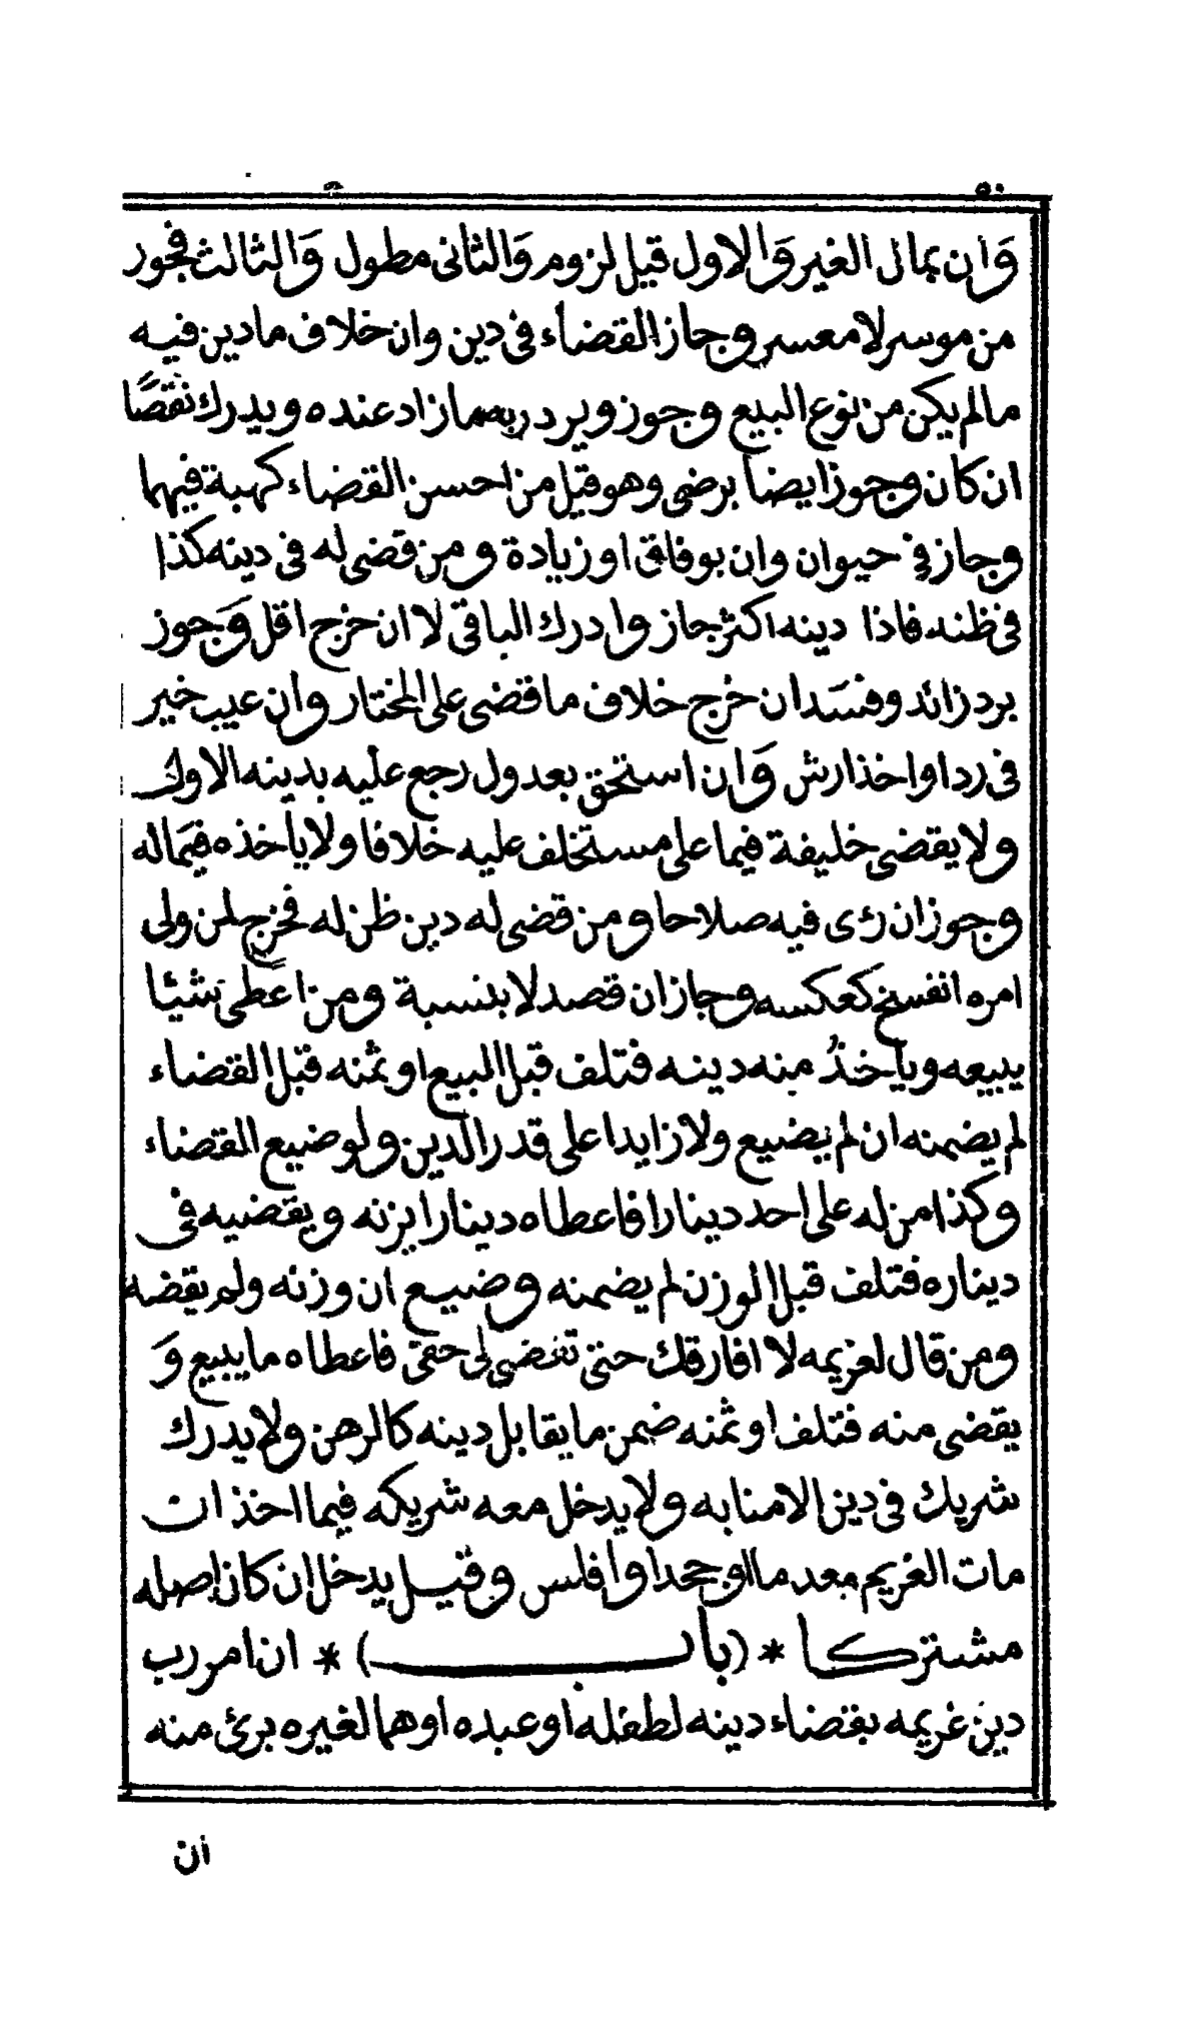 وَان بمال الغير وَالاول قيل لزوم وَالثانى مطول وَالثالث فجور
من موسر لا معسر وجاز القضاء فى دين وان خلاف مادين فيه
مالم يكن من نوع البيع وجوز ويرد ربه مازاد عنده ويدرك نقصًا
ان كان وجوز ايضا برضى وهو قيل من احسن القضاء كهبة فيهما
وجاز في حيوان وان بوفاق او زيادة ومن قضى له فى دينه كذا
فى ظنه فاذا دينه اكثر جاز وادرك الباقى لا ان خرج اقل وَجوز
برد زائد وفسَد ان خرج خلاف ما قضى على المختار وان عيب خير
فى رد او اخذ ارش وَان استحق بعدول رجع عليه بدينه الاول
ولا يقضى خليفة فيما على مستخلف عليه خلافا ولا ياخذه فيمَا له
وجوز ان رؤى فيه صلاحا ومن قضى له دين ظن له فخرج لمن ولى
امره انفسخ كعكسه وجاز ان قصد لا بنسبة ومن اعطى شيئا
يبيعه وياخذُ منه دينه فتلف قبل البيع او ثمنه قبل القضاء
لم يضمنه ان لم يضيع ولا زايدا على قدر الدين ولو ضيع القضاء
وكذا من له على احد دينارا فاعطاه دينارا يزنه ويقضيه فى
ديناره فتلف قبل الوزن لم يضمنه وضيع ان وزنه ولم يقضه
ومن قال لغريمه لا افارقك حتى تقضى لى حقى فاعطاه ما يبيع وَ
يقضى منه فتلف او ثمنه ضمن ما يقابل دينه كالرهن ولا يدرك
شريك فى دين الا منابه ولا يدخل معه شريكه فيما اخذ ان
مات الغريم بعد ما او جحد او افلس وقيل يدخل ان كان اصله
مشتركا * (باب) * ان امر رب
دين غريمه بقضاء دينه لطفله او عبده او هما لغيره برئ منه
ان